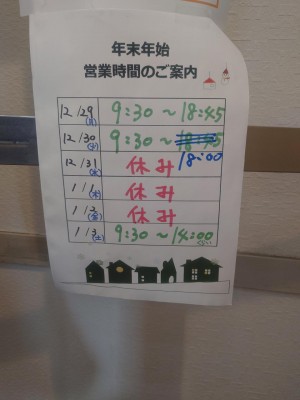 年末年始
営業時間のご案内
12/29(月) 9:30~18:45
12/30(火) 9:30~18:45 18:00
12/31(水) 休み
1/1(木) 休み
1/2(金) 休み
1/3(土) 9:30~14:00